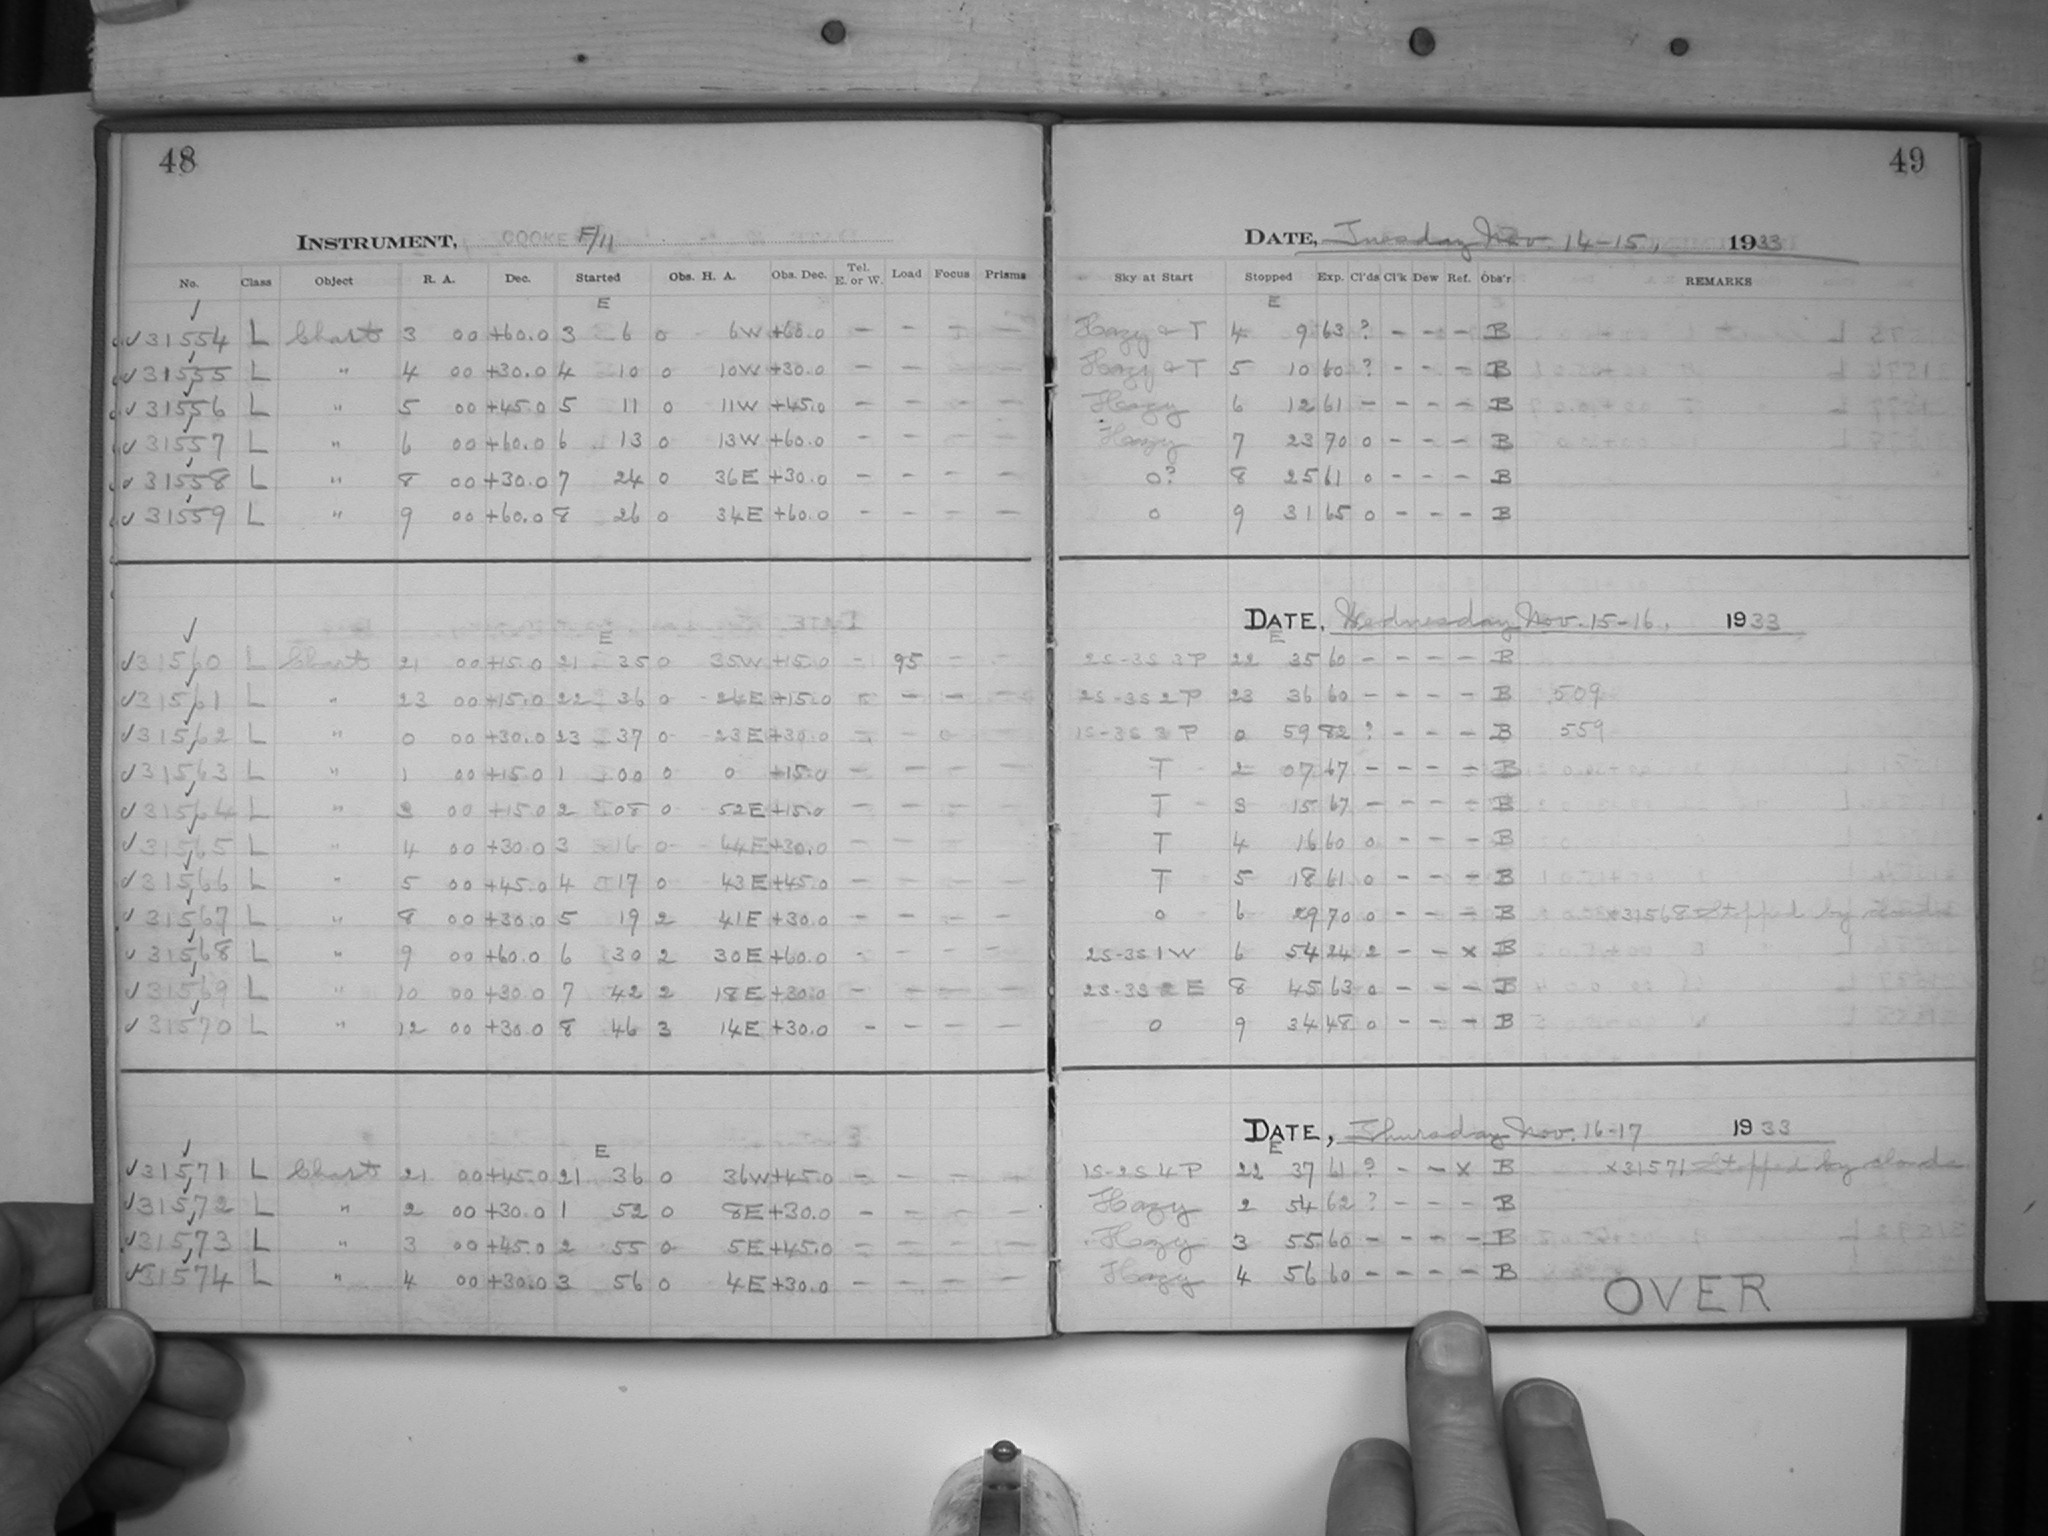 48
INSTRUMENT, COOKE F/11
No. Class Object R. A. Dec. Started Obs. H. A. Obs. Dec. Tel. E. or W. Load Focus Prisms
E
31554 L Chart 3 00 +60.0 3 6 0 6W +60.0 - - - -
31555 L " 4 00 +30.0 4 10 0 10W +30.0 - - - -
31556 L " 5 00 +45.0 5 11 0 11W +45.0 - - - -
31557 L " 6 00 +60.0 6 13 0 13W +60.0 - - - -
31558 L " 8 00 +30.0 7 24 0 36E +30.0 - - - -
31559 L " 9 00 +60.0 8 26 0 34E +60.0 - - - -
E
31560 L Chart 21 00 +15.0 21 35 0 35W +15.0 - 95 - -
31561 L " 23 00 +15.0 22 36 0 24E +15.0 - - - -
31562 L " 0 00 +30.0 23 37 0 23E +30.0 - - - -
31563 L " 1 00 +15.0 1 00 0 0 +15.0 - - - -
31564 L " 3 00 +15.0 2 08 0 52E +15.0 - - - -
31565 L " 4 00 +30.0 3 16 0 44E +30.0 - - - -
31566 L " 5 00 +45.0 4 17 0 43E +45.0 - - - -
31567 L " 8 00 +30.0 5 19 2 41E +30.0 - - - -
31568 L " 9 00 +60.0 6 30 2 30E +60.0 - - - -
31569 L " 10 00 +30.0 7 42 2 18E +30.0 - - - -
31570 L " 12 00 +30.0 8 46 3 14E +30.0 - - - -
E
31571 L Chart 21 00 +45.0 21 36 0 36W +45.0 - - - -
31572 L " 2 00 +30.0 1 52 0 8E +30.0 - - - -
31573 L " 3 00 +45.0 2 55 0 5E +45.0 - - - -
31574 L " 4 00 +30.0 3 56 0 4E +30.0 - - - -
49
DATE, Tuesday Nov. 14-15, 1933
Sky at Start Stopped Exp. Cl'ds Cl'k Dew Ref. Obs'r REMARKS
E
Hazy & T 4 9 63 ? - - - B
Hazy & T 5 10 60 ? - - - B
Hazy 6 12 61 - - - - B
Hazy 7 23 70 0 - - - B
0? 8 25 61 0 - - - B
0 9 31 65 0 - - - B
DATE, Wednesday Nov. 15-16, 1933
E
2S-3S 3P 22 35 60 - - - - B
2S-3S 2P 23 36 60 - - - - B 509
1S-3S 3P 0 59 82 ? - - - B 559
T 2 07 67 - - - - B
T 3 15 67 - - - - B
T 4 16 60 0 - - - B
T 5 18 61 0 - - - B
0 6 29 70 0 - - - B x31568 Stopped by clouds
2S-3S 1W 6 54 24 2 - - x B
2S-3S 2E 8 45 63 0 - - - B
0 9 34 48 0 - - - B
DATE, Thursday Nov. 16-17 1933
E
1S-2S 4P 22 37 61 ? - - x B x31571 Stopped by clouds
Hazy 2 54 62 ? - - - B
Hazy 3 55 60 - - - - B
Hazy 4 56 60 - - - - B
OVER